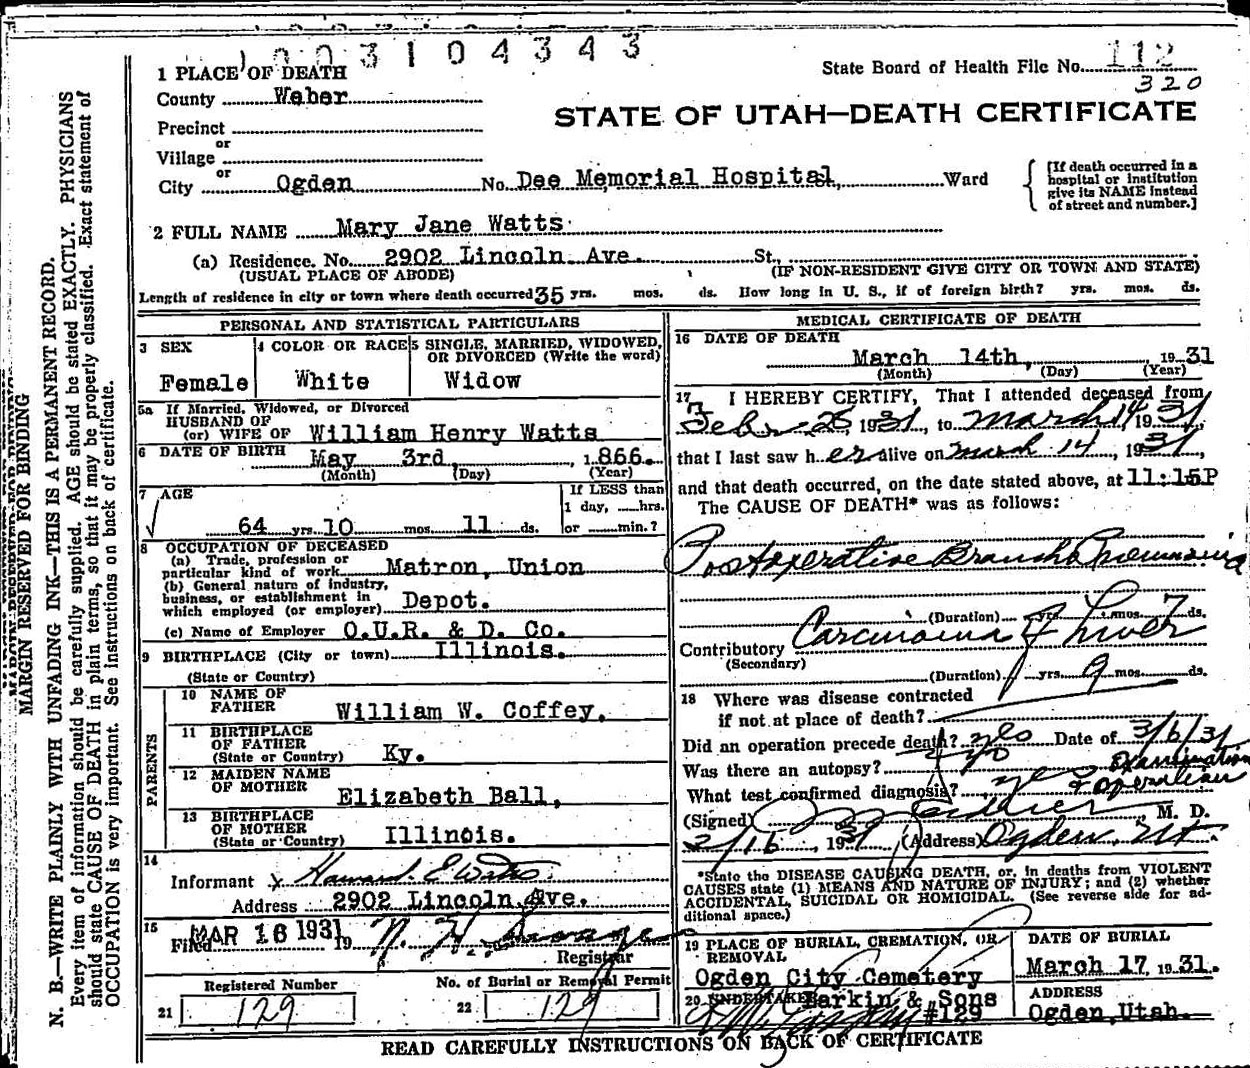 1003104343
State Board of Health File No. 112
320
1 PLACE OF DEATH
County Weber
STATE OF UTAH—DEATH CERTIFICATE
Precinct
or
Village
or
City Ogden No. Dee Memorial Hospital, Ward
[If death occurred in a
hospital or institution
give its NAME instead
of street and number.]
2 FULL NAME Mary Jane Watts
(a) Residence. No. 2902 Lincoln Ave. St.,
(USUAL PLACE OF ABODE) (IF NON-RESIDENT GIVE CITY OR TOWN AND STATE)
Length of residence in city or town where death occurred 35 yrs. mos. ds. How long in U. S., if of foreign birth? yrs. mos. ds.
PERSONAL AND STATISTICAL PARTICULARS
3 SEX
Female
4 COLOR OR RACE
White
5 SINGLE, MARRIED, WIDOWED,
OR DIVORCED (Write the word)
Widow
5a If Married, Widowed, or Divorced
HUSBAND OF
(or) WIFE OF William Henry Watts
6 DATE OF BIRTH May 3rd, 1866.
(Month) (Day) (Year)
7 AGE
64 yrs. 10 mos. 11 ds.
If LESS than
1 day, hrs.
or min.?
8 OCCUPATION OF DECEASED
(a) Trade, profession or
particular kind of work Matron, Union
(b) General nature of industry,
business, or establishment in
which employed (or employer) Depot.
(c) Name of Employer O.U.R. & D. Co.
9 BIRTHPLACE (City or town) Illinois.
(State or Country)
PARENTS
10 NAME OF
FATHER William W. Coffey.
11 BIRTHPLACE
OF FATHER
(State or Country) Ky.
12 MAIDEN NAME
OF MOTHER
Elizabeth Ball,
13 BIRTHPLACE
OF MOTHER
(State or Country) Illinois.
14
Informant x Howard E Watts
Address 2902 Lincoln Ave.
15
Filed MAR 16 1931 19
Registrar
Registered Number
21 129
No. of Burial or Removal Permit
22 129
MEDICAL CERTIFICATE OF DEATH
16 DATE OF DEATH
March 14th, 1931
(Month) (Day) (Year)
17 I HEREBY CERTIFY, That I attended deceased from
Feb 25, 1931, to March 14 1931
that I last saw her alive on March 14, 1931,
and that death occurred, on the date stated above, at 11:15P
The CAUSE OF DEATH* was as follows:
Postoperative Broncho Pneumonia
(Duration) yrs. mos. 7 ds.
Contributory Carcinoma of Liver
(Secondary)
(Duration) yrs. 9 mos. ds.
18 Where was disease contracted
if not at place of death?
Did an operation precede death? yes Date of 3/6/31
Was there an autopsy? no
What test confirmed diagnosis? yes Examination & operation
(Signed) M. D.
3/16, 1931 (Address) Ogden, Ut.
*State the DISEASE CAUSING DEATH, or, in deaths from VIOLENT
CAUSES state (1) MEANS AND NATURE OF INJURY; and (2) whether
ACCIDENTAL, SUICIDAL OR HOMICIDAL. (See reverse side for ad-
ditional space.)
19 PLACE OF BURIAL, CREMATION, OR
REMOVAL
Ogden City Cemetery
DATE OF BURIAL
March 17, 1931.
20 UNDERTAKER Larkin & Sons
#129
ADDRESS
Ogden, Utah.
READ CAREFULLY INSTRUCTIONS ON BACK OF CERTIFICATE
MARGIN RESERVED FOR BINDING
N. B.—WRITE PLAINLY WITH UNFADING INK—THIS IS A PERMANENT RECORD.
Every item of information should be carefully supplied. AGE should be stated EXACTLY. PHYSICIANS
should state CAUSE OF DEATH in plain terms, so that it may be properly classified. Exact statement of
OCCUPATION is very important. See instructions on back of certificate.